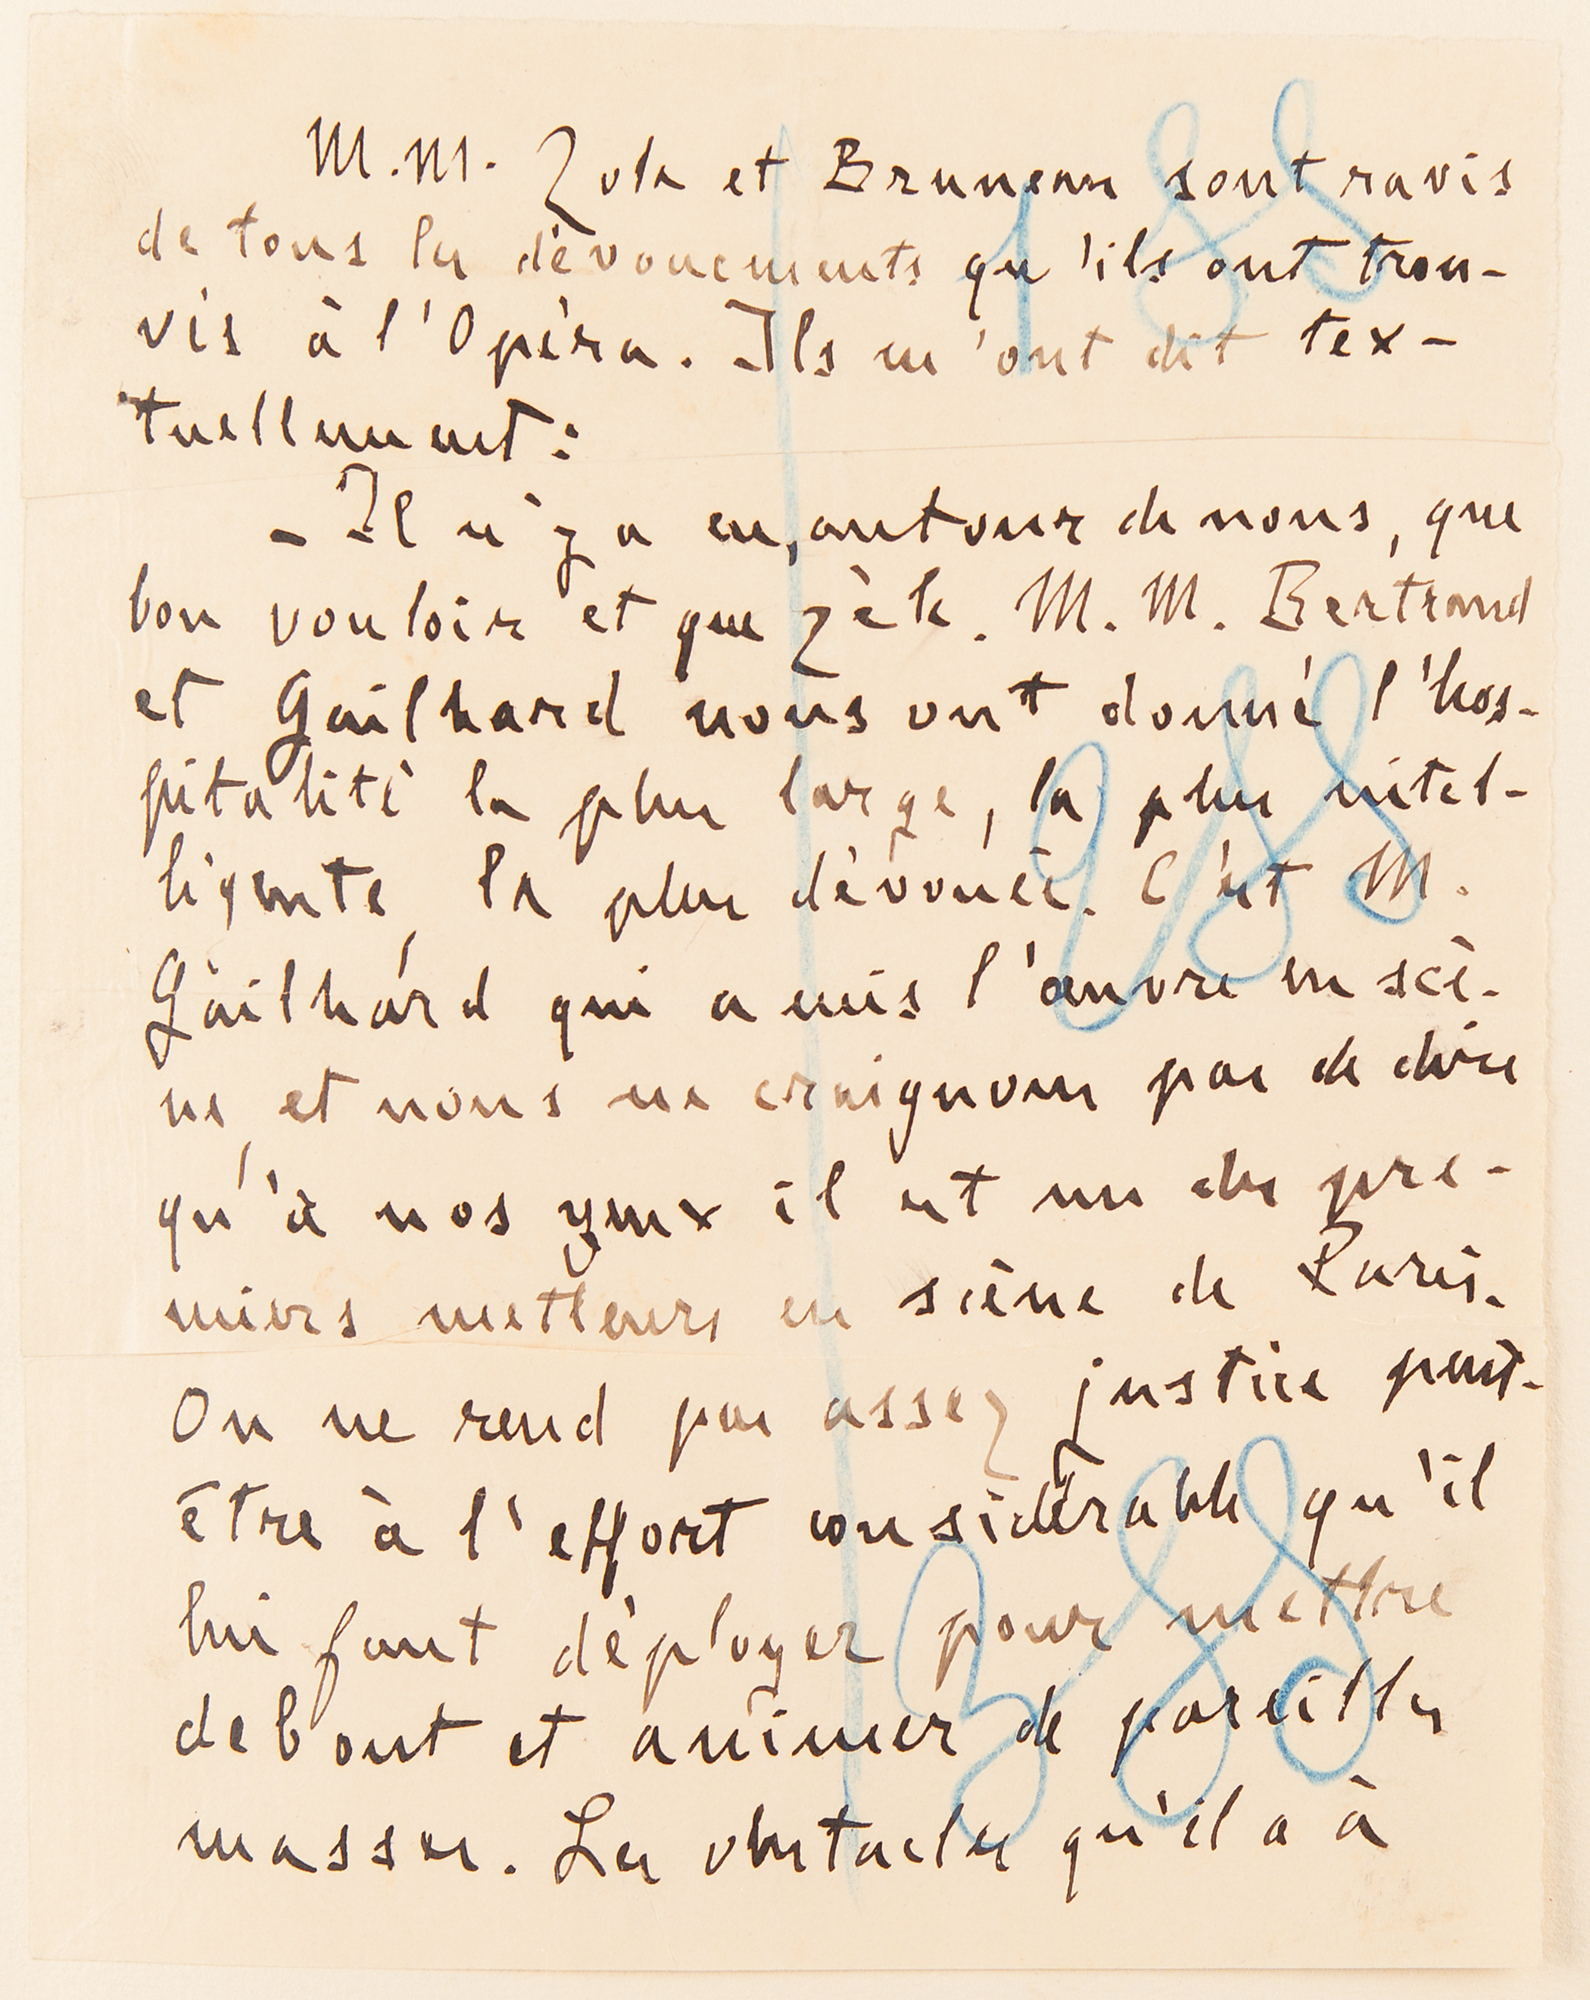 M.M. Zola et Bruneau sont ravis
de tous les dévouements qu'ils ont trou-
vés à l'Opéra. Ils m'ont dit tex-
tuellement :
- Il n'y a eu, autour de nous, que
bon vouloir et que zèle. M. M. Bertrand
et Gailhard nous ont donné l'hos-
pitalité la plus large, la plus intel-
ligente, la plus dévouée. C'est M.
Gailhard qui a mis l'œuvre en scè-
ne, et nous ne craignons pas de dire
qu'à nos yeux il est un des pre-
miers metteurs en scène de Paris.
On ne rend pas assez justice peut-
être à l'effort considérable qu'il
lui faut déployer pour mettre
debout et animer de pareilles
masses. Les obstacles qu'il a à